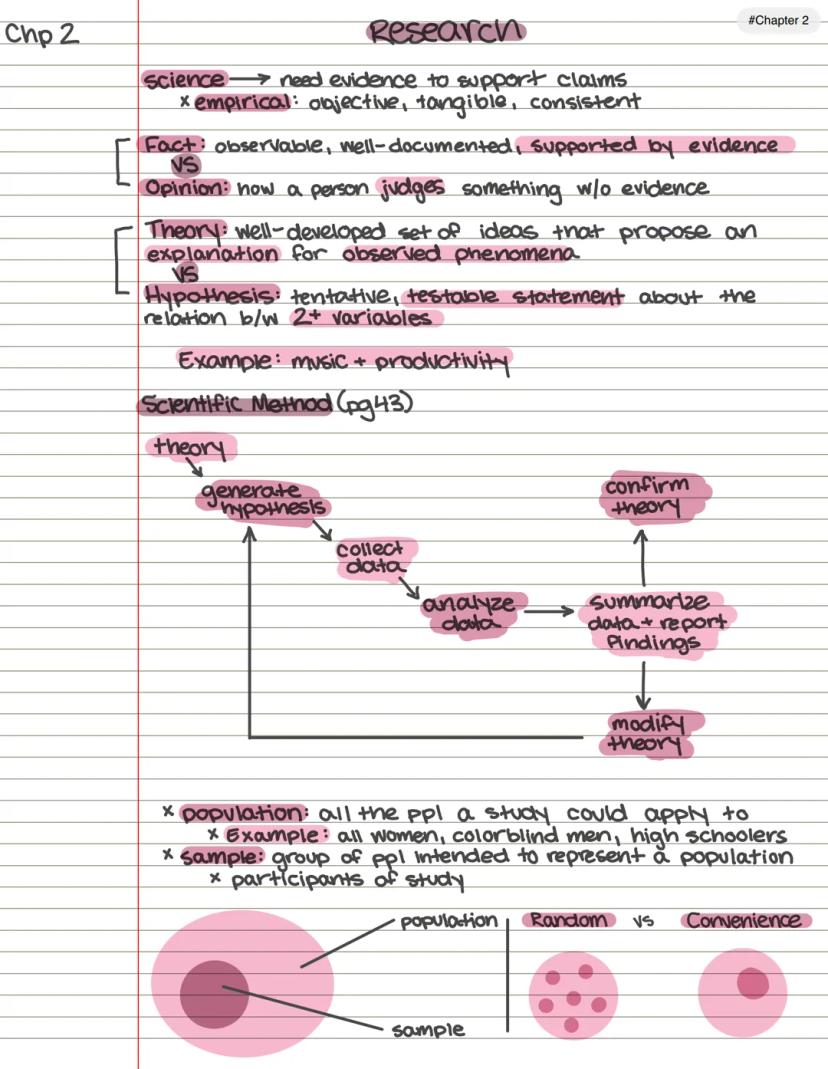 #Chapter 2
Chp 2
Research
science → need evidence to support claims
x empirical: objective, tangible, consistent
Fact: observable, well-documented, supported by evidence
VS
Opinion: how a person judges something w/o evidence
Theory: well-developed set of ideas that propose an
explanation for observed phenomena
VS
Hypothesis: tentative, testable statement about the
relation b/w 2+ variables
Example: music + productivity
Scientific Method (pg43)
theory
generate
hypothesis
collect
data
analyze
data
summarize
data + report
findings
confirm
theory
modify
theory
x population: all the ppl a study could apply to
x Example: all women, colorblind men, high schoolers
x sample: group of ppl intended to represent a population
x participants of study
population
sample
Random vs Convenience